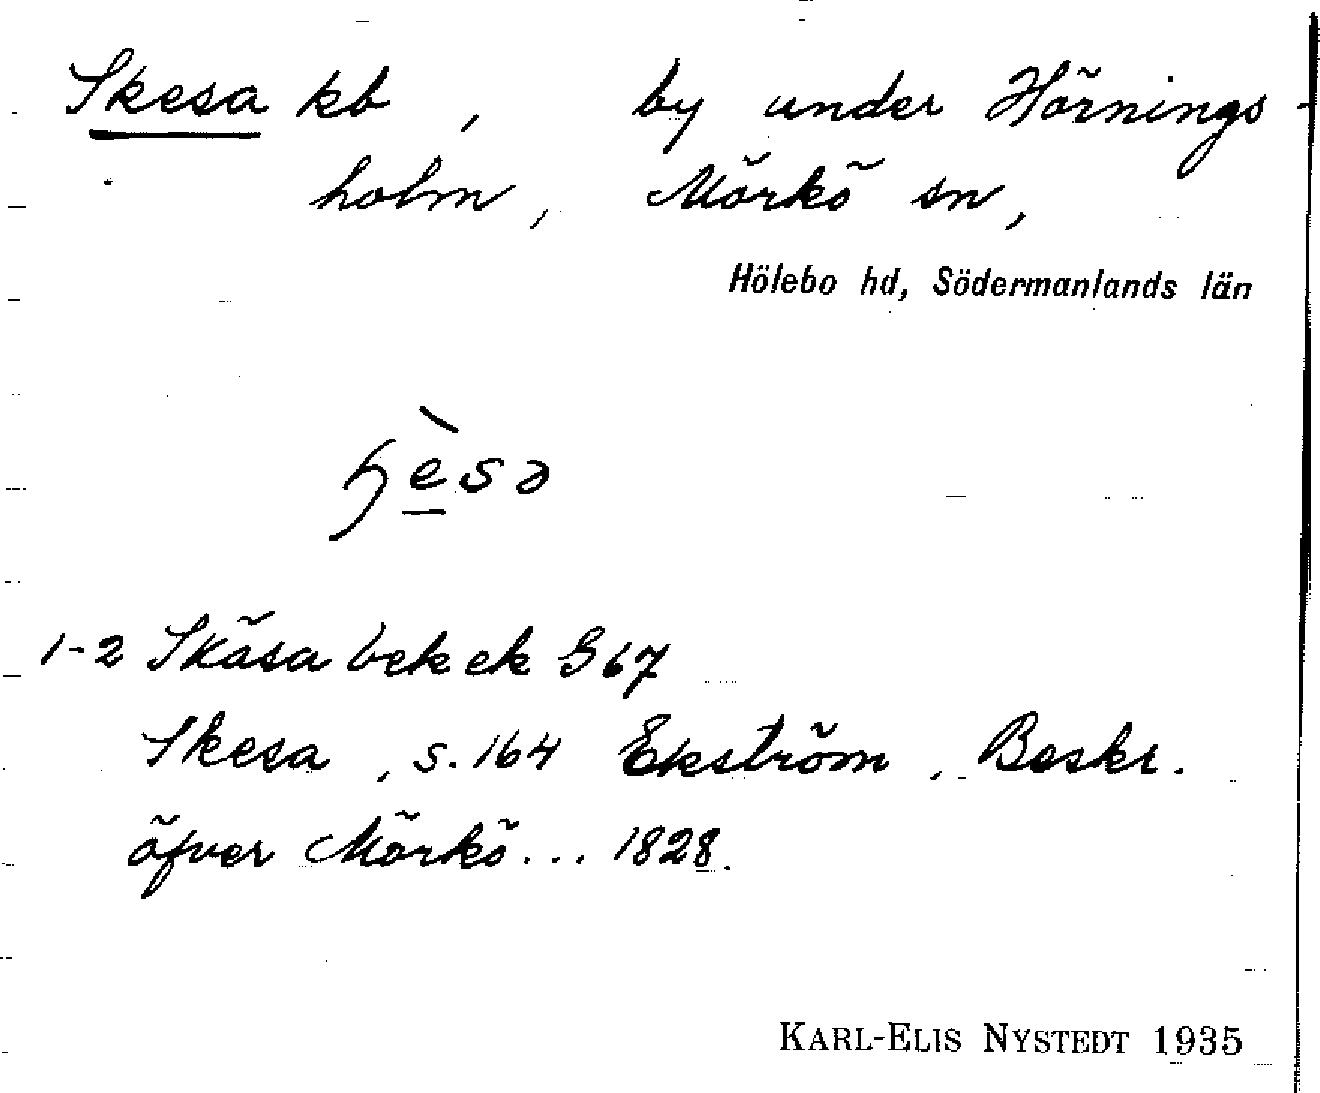 Skesa kb, by under Hörnings-
holm, Mörkö sn,
Hölebo hd, Södermanlands län
ɧèsə
1-2 Skäsa bek ek G67
Skesa, s. 164 Ekström, Beskr.
öfver Mörkö... 1828.
KARL-ELIS NYSTEDT 1935